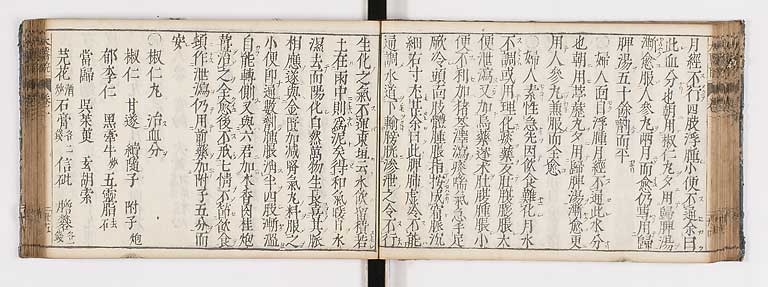 月經不行四肢浮腫小便不通余曰
此血分也朝用椒仁丸夕用歸脾湯
漸愈服人參丸兩月而愈仍專用歸
脾湯五十餘劑而平
○婦人面目浮腫月經不通此水分
也朝用葶藶丸夕用歸脾湯漸愈更
用人參丸兼服而全愈
○婦人素性急先因飲食難化月水
不調或用理化痰藥反肚腹膨脹大
便泄瀉又加烏藥蓬朮肚腹腫脹小
便不利加猪苓澤瀉痰喘氣急手足
厥冷頭面肢體腫脹指按成窟脈沉
細右寸尤甚余曰此脾肺虛冷不能
通調水道下輸膀胱滲泄之令不行
生化之氣不運東垣云水飲留積若
土在雨中則為泥矣得和氣暖日水
濕去而陽化自然萬物生長喜其脈
相應遂與金匱加減腎氣丸料服之
小便即通數劑腫脹消半四肢漸溫
自能轉側又與六君加木香肉桂炮
薑治之全愈後不戒七情不節飲食
頓作泄瀉仍用前藥加附子五分而
安
○椒仁丸 治血分
椒仁 甘遂 續隨子 附子炮
郁李仁 黑牽牛 五靈脂
當歸 吳茱萸 玄胡索
芫花 石膏 信砒 膽礬